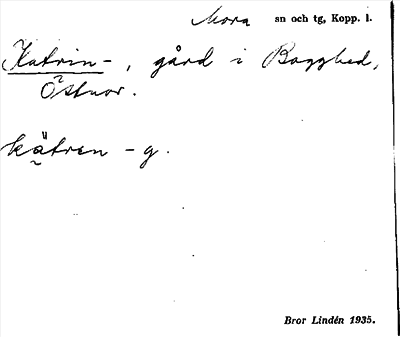 Mora sn och tg, Kopp. l.
Katrin-, gård i Bogghed,
Östnor.
kätren - g.
Bror Lindén 1935.